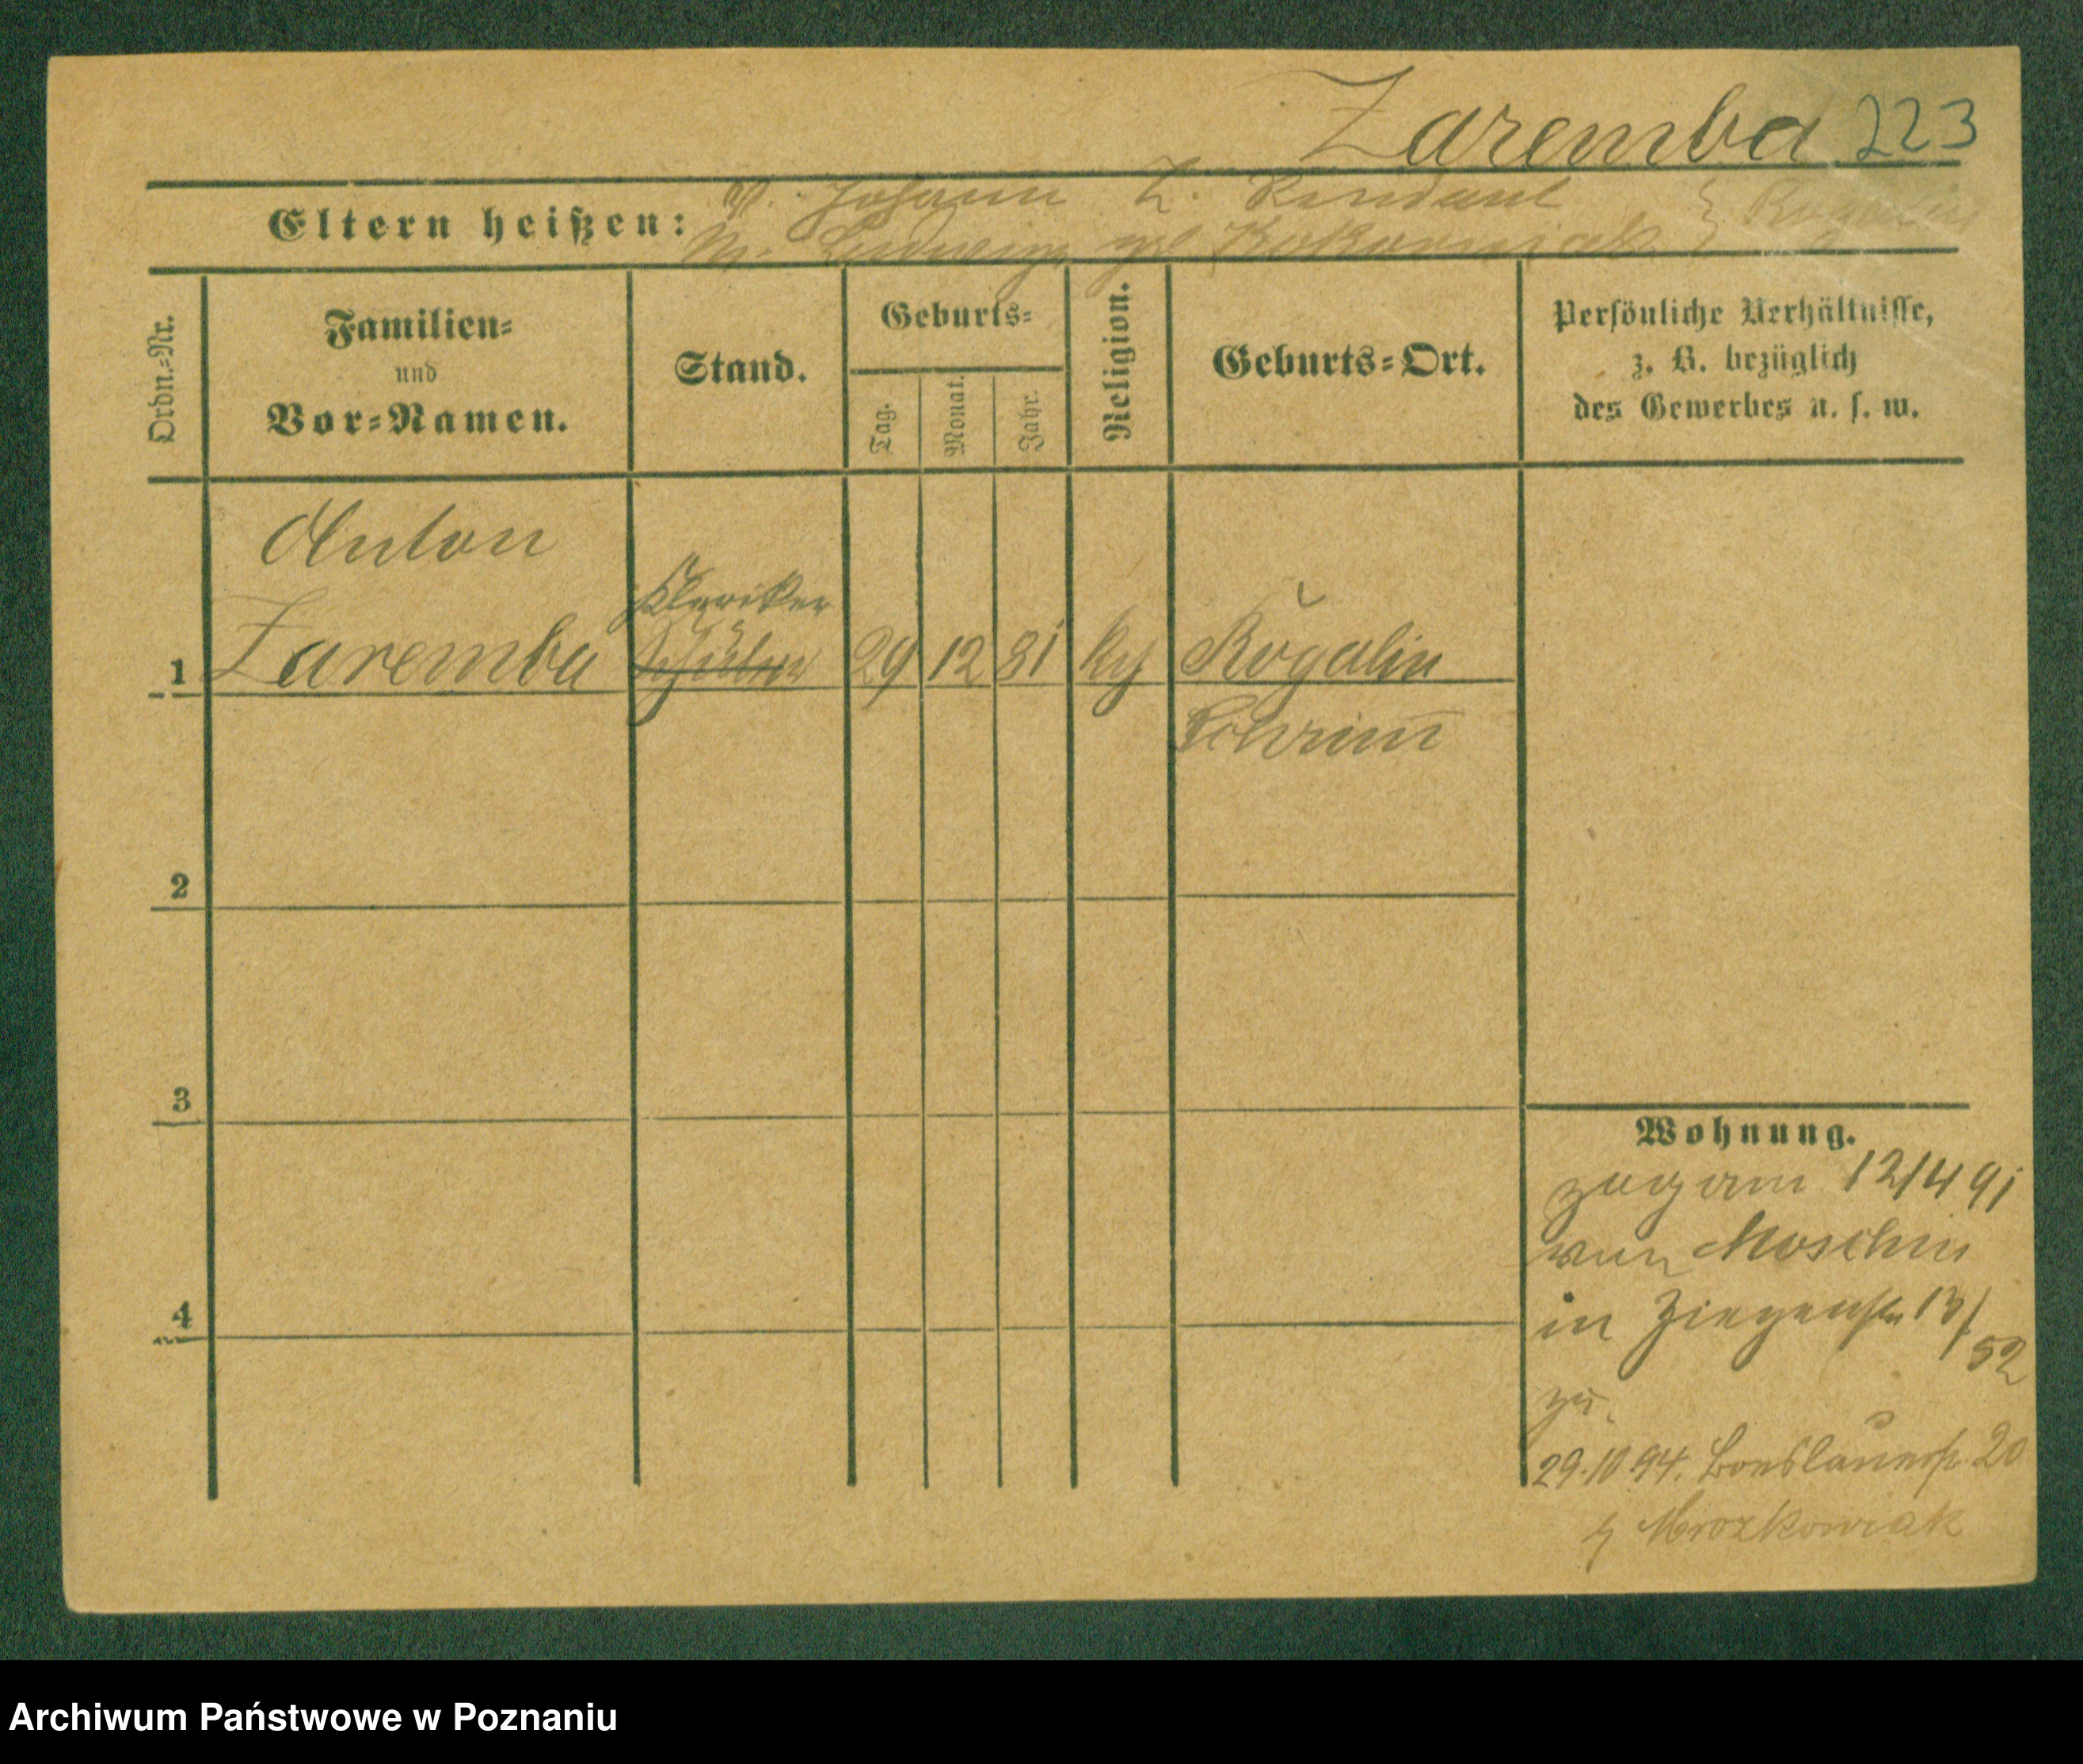 Zaremba 223
Eltern heißen:
V. Johann Z. Rendant } Rogalin
M. Ludwiga gb
Ordn.-Nr.
Familien-
und
Vor-Namen.
Stand.
Geburts-
Tag.
Monat.
Jahr.
Religion.
Geburts-Ort.
Persönliche Verhältnisse,
z. B. bezüglich
des Gewerbes u. s. w.
Anton
Kleriker
1 Zaremba Schüler 29 12 81 Rogalin
Schrimm
2
3
4
Wohnung.
zug am 12/4 91
von Moschin
in Ziegenstr 13/
52
zu.
29.10.94. Breslauerstr. 20
Mrozkowiak
Archiwum Państwowe w Poznaniu